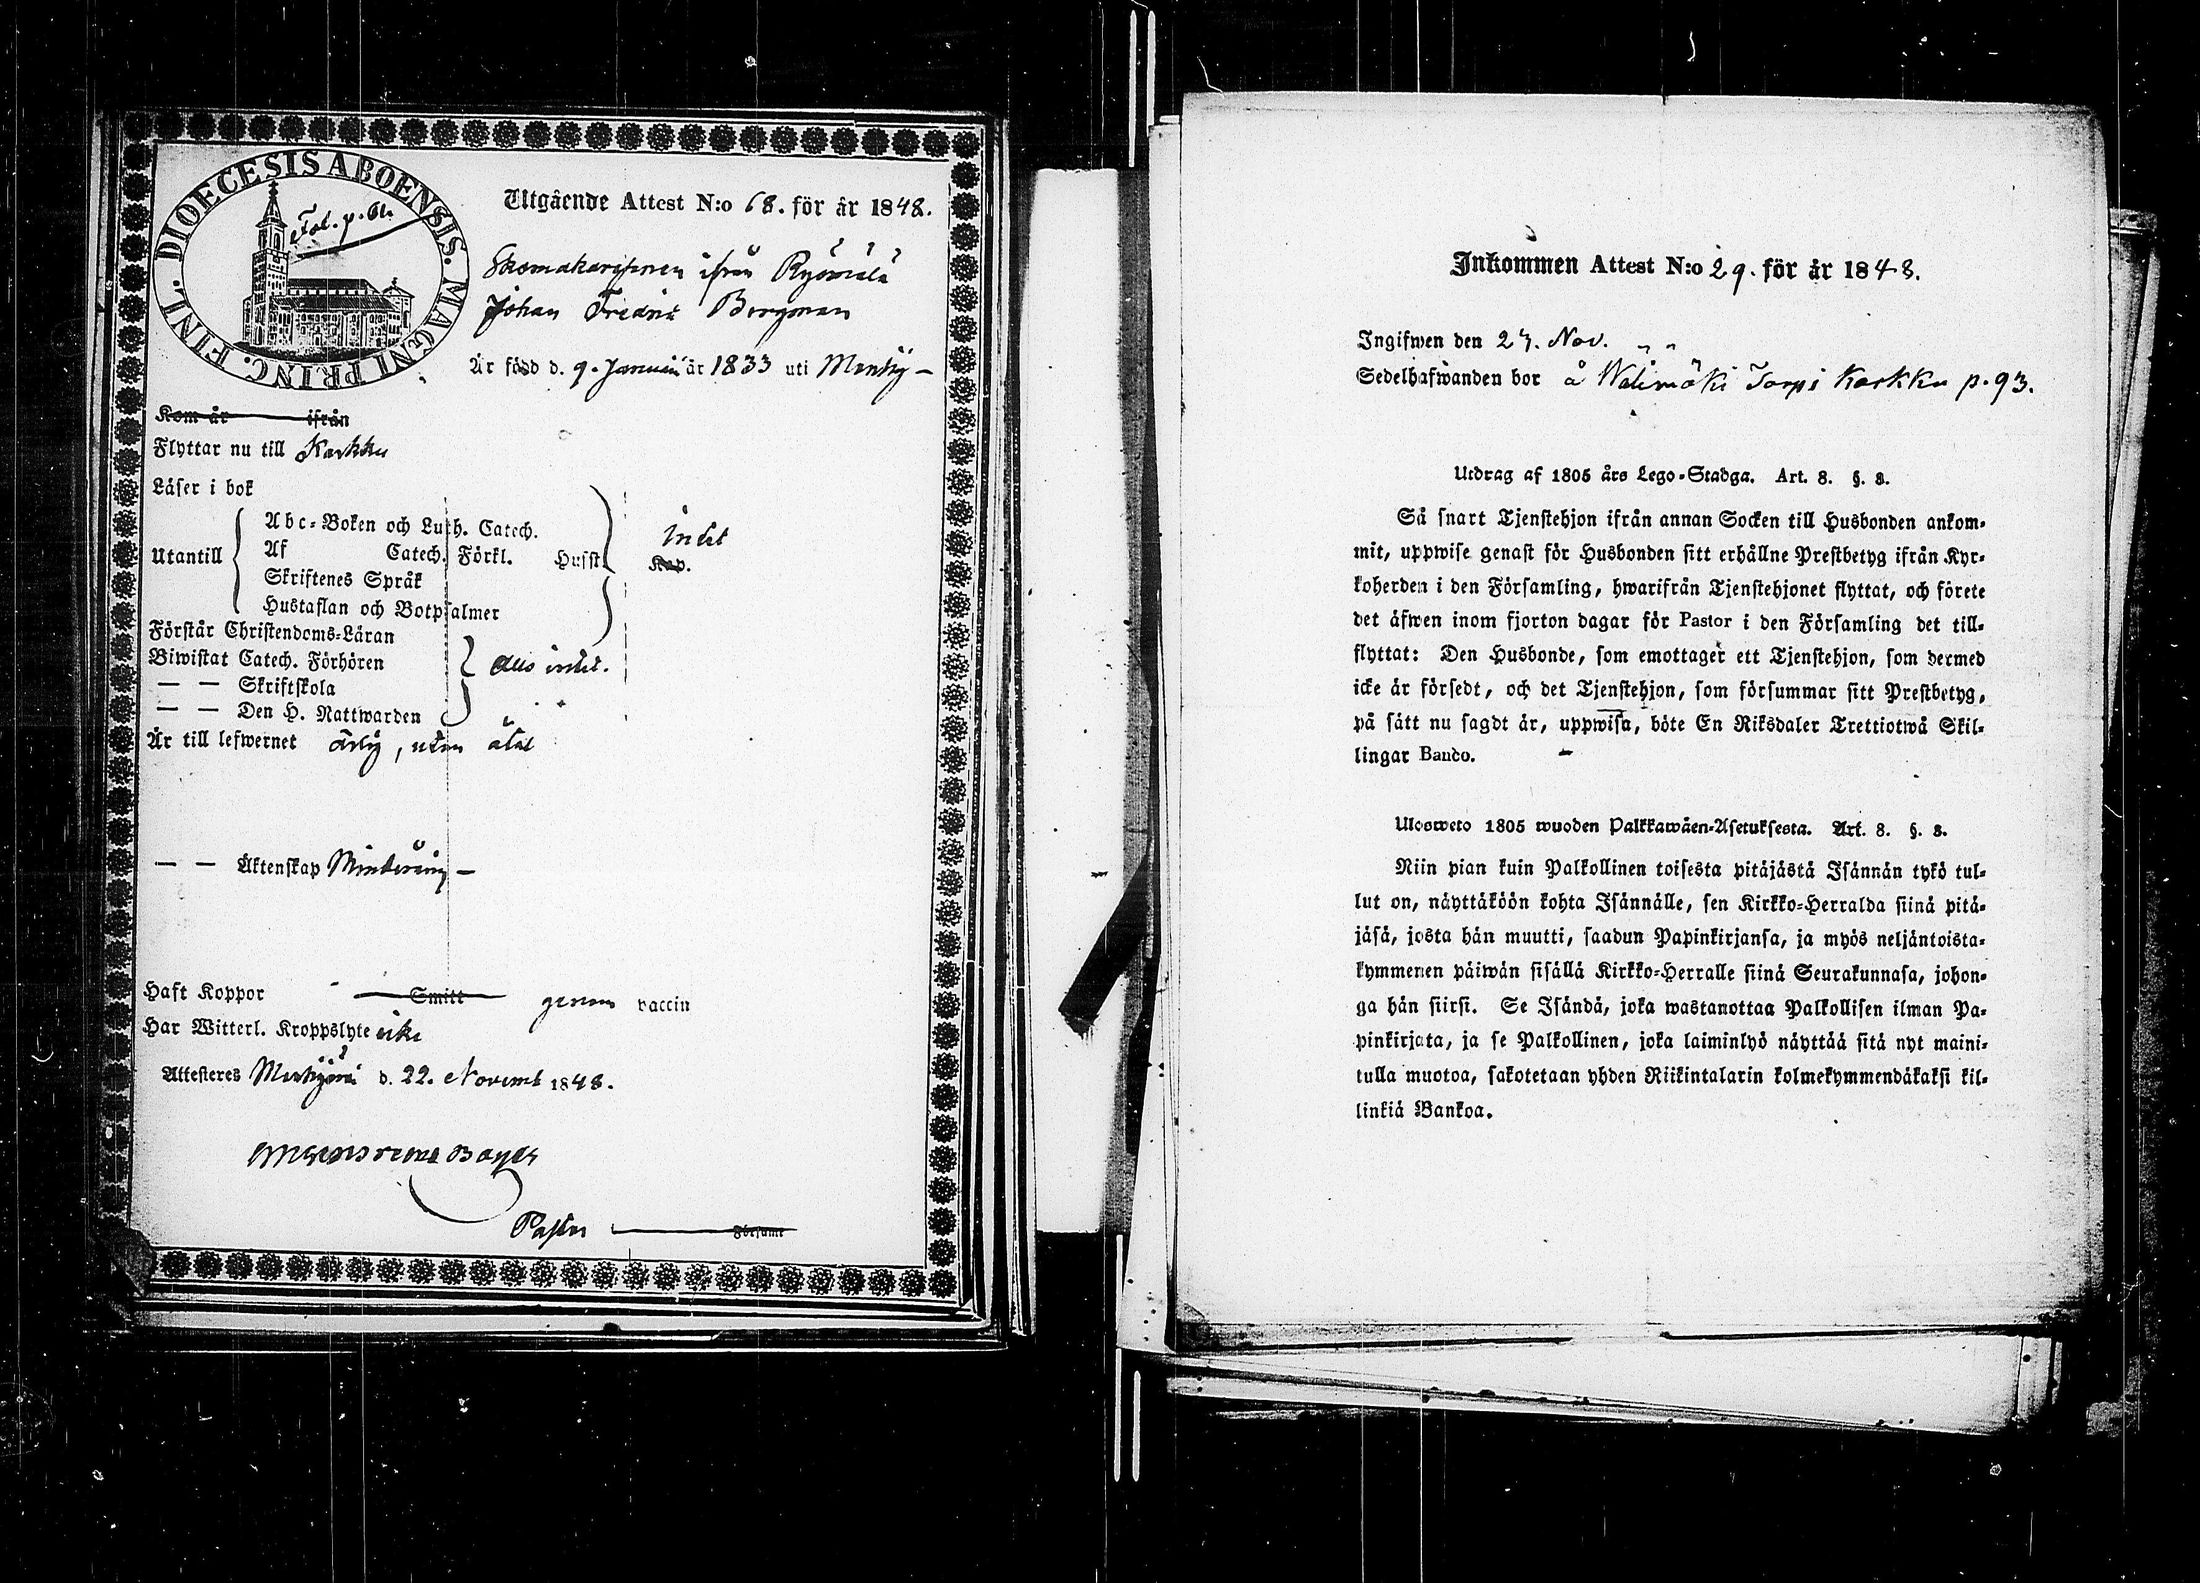 DIOECESIS ABOENSIS. MAGNI PRINC. FINL.
Fol. p.
Utgående Attest N:o 68. för år 1848.
ifrån
Johan Fredrik Bergman
Är född d. 9. Januarii år 1833 uti
Kom år ifrån
Flyttar nu till Karkku
Läser i bok
Abc-Boken och Luth. Catech.
Utantill Af Catech. Förkl. Husst. Kap.
intet
Skriftenes Språk
Hustaflan och Botpsalmer
Förstår Christendoms-Läran
Biwistat Catech. Förhören intet.
— — Skriftskola
— — Den H. Nattwarden
Är till lefwernet ärlig, utan åtal
— — Äktenskap Minderårig —
Haft Koppor Smitt genom vaccin
Har Witterl. Kroppslyte icke
Attesteres d. 22. Novemb 1848.
Pastor Församl
Inkommen Attest N:o 29. för år 1848.
Ingifwen den 27. Nov. „ „
Sedelhafwanden bor å Walimäki Torp i Karkku p. 93.
Utdrag af 1805 års Lego-Stadga. Art. 8. §. 8.
Så snart Tjenstehjon ifrån annan Socken till Husbonden ankom-
mit, uppwise genast för Husbonden sitt erhållne Prestbetyg ifrån Kyr-
koherden i den Församling, hwarifrån Tjenstehjonet flyttat, och förete
det äfwen inom fjorton dagar för Pastor i den Församling det till-
flyttat: Den Husbonde, som emottager ett Tjenstehjon, som dermed
icke är försedt, och det Tjenstehjon, som försummar sitt Prestbetyg,
på sätt nu sagdt är, uppwisa, böte En Riksdaler Trettiotwå Skil-
lingar Banco.
Ulosweto 1805 wuoden Palkkawäen-Asetuksesta. Art. 8. §. 8.
Niin pian kuin Palkollinen toisesta pitäjästä Isännän tykö tul-
lut on, näyttäköön kohta Isännälle, sen Kirkko-Herralda siinä pitä-
jäsä, josta hän muutti, saadun Papinkirjansa, ja myös neljäntoista-
kymmenen päiwän sisällä Kirkko-Herralle siinä Seurakunnasa, johon-
ga hän siirsi. Se Isändä, joka wastanottaa Palkollisen ilman Pa-
pinkirjata, ja se Palkollinen, joka laiminlyö näyttää sitä nyt maini-
tulla muotoa, sakotetaan yhden Riikintalarin kolmekymmendäkaksi kil-
linkiä Bankoa.